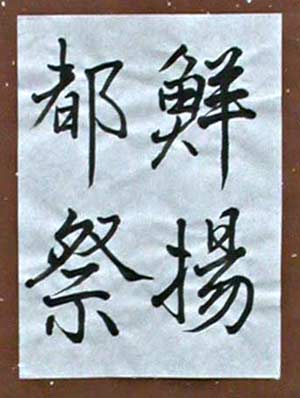 鮮揚
都祭